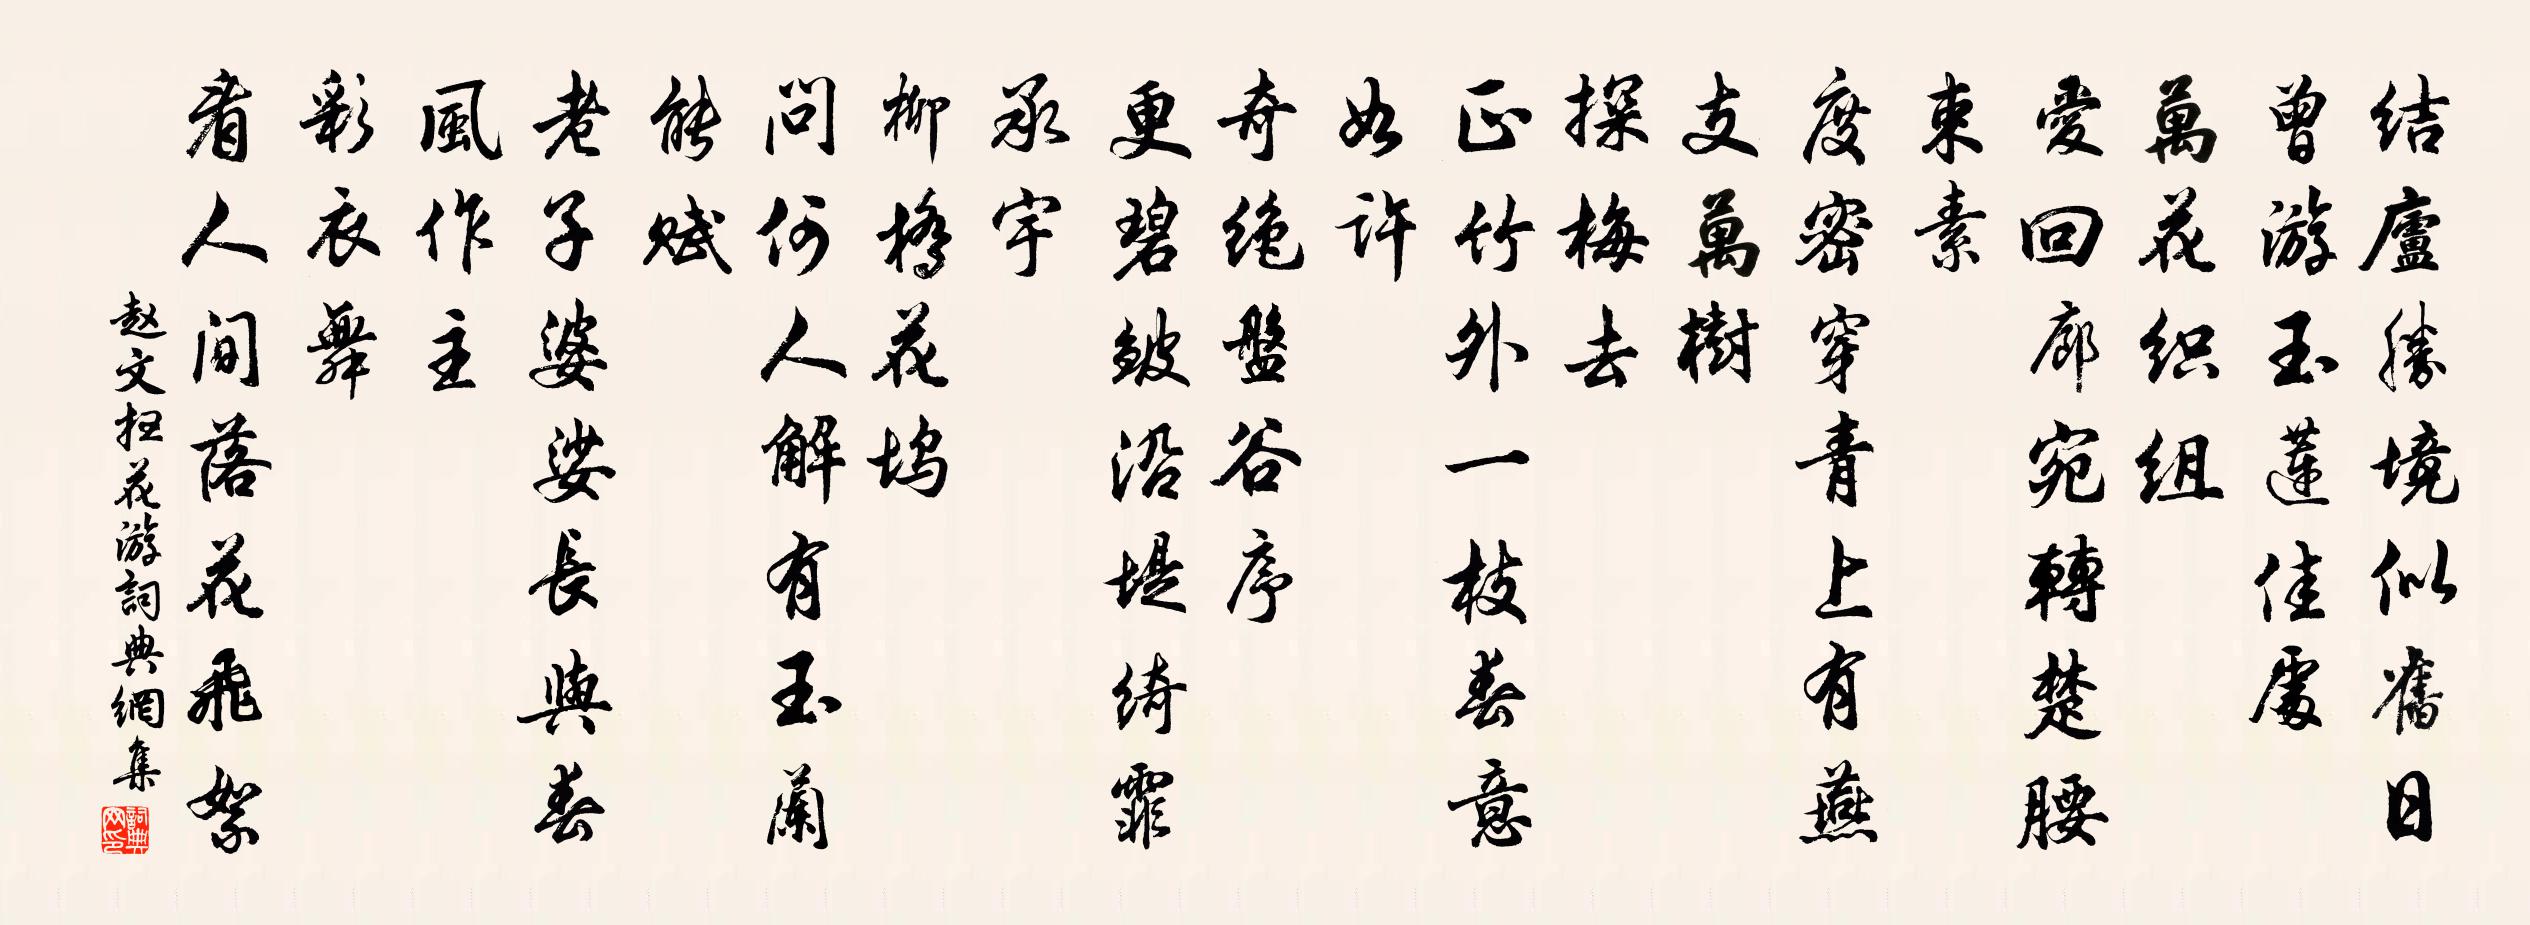 結廬勝境似舊日
曾游玉蓮佳處
萬花织組
愛回廊宛轉楚腰
束素
度密穿青上有燕
支萬樹
探梅去
正竹外一枝春意
如許
奇絕盤谷序
更碧皺沿堤綺霏
承宇
柳橋花塢
問何人解有玉蘭
能賦
老子婆娑長與春
風作主
彩衣舞
看人間落花飛絮
赵文扫花游詞典網集
詞典